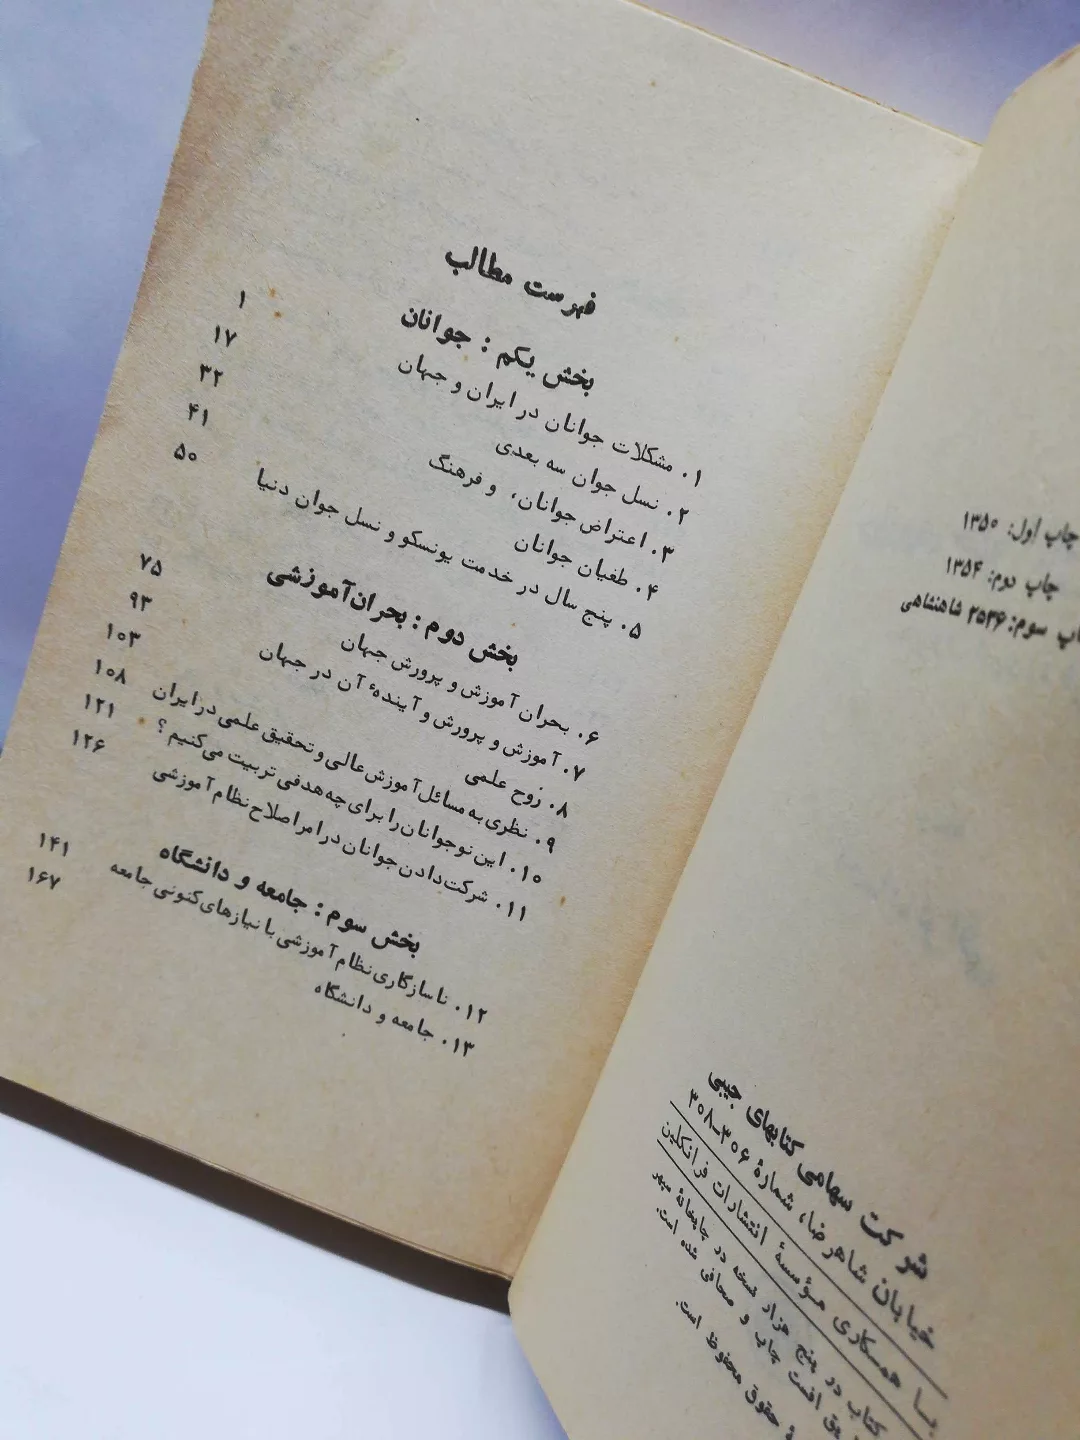 چاپ اول: ۱۳۵۰
چاپ دوم: ۱۳۵۴
سوم: ۲۵۳۶ شاهنشاهی
شرکت سهامی کتابهای جیبی
خیابان شاهرضا، شمارهٔ ۳۰۶-۳۰۸
با همکاری مؤسسهٔ انتشارات فرانکلین
کتاب در پنج هزار نسخه در چاپخانهٔ سپهر
افست چاپ و صحافی شده است.
حقوق محفوظ است.
فهرست مطالب
بخش یکم: جوانان
۱. مشکلات جوانان در ایران و جهان ۱
۲. نسل جوان سه بعدی ۱۷
۳. اعتراض جوانان، و فرهنگ ۳۲
۴. طغیان جوانان ۴۱
۵. پنج سال در خدمت یونسکو و نسل جوان دنیا ۵۰
بخش دوم: بحران‌آموزشی
۶. بحران آموزش و پرورش جهان ۷۵
۷. آموزش و پرورش و آیندهٔ آن در جهان ۹۳
۸. روح علمی ۱۰۳
۹. نظری به مسائل آموزش عالی و تحقیق علمی در ایران ۱۰۸
۱۰. این نوجوانان را برای چه هدفی تربیت می‌کنیم؟ ۱۲۱
۱۱. شرکت دادن جوانان در امر اصلاح نظام آموزشی ۱۲۶
بخش سوم: جامعه و دانشگاه
۱۲. ناسازگاری نظام آموزشی با نیازهای کنونی جامعه ۱۴۱
۱۳. جامعه و دانشگاه ۱۶۷